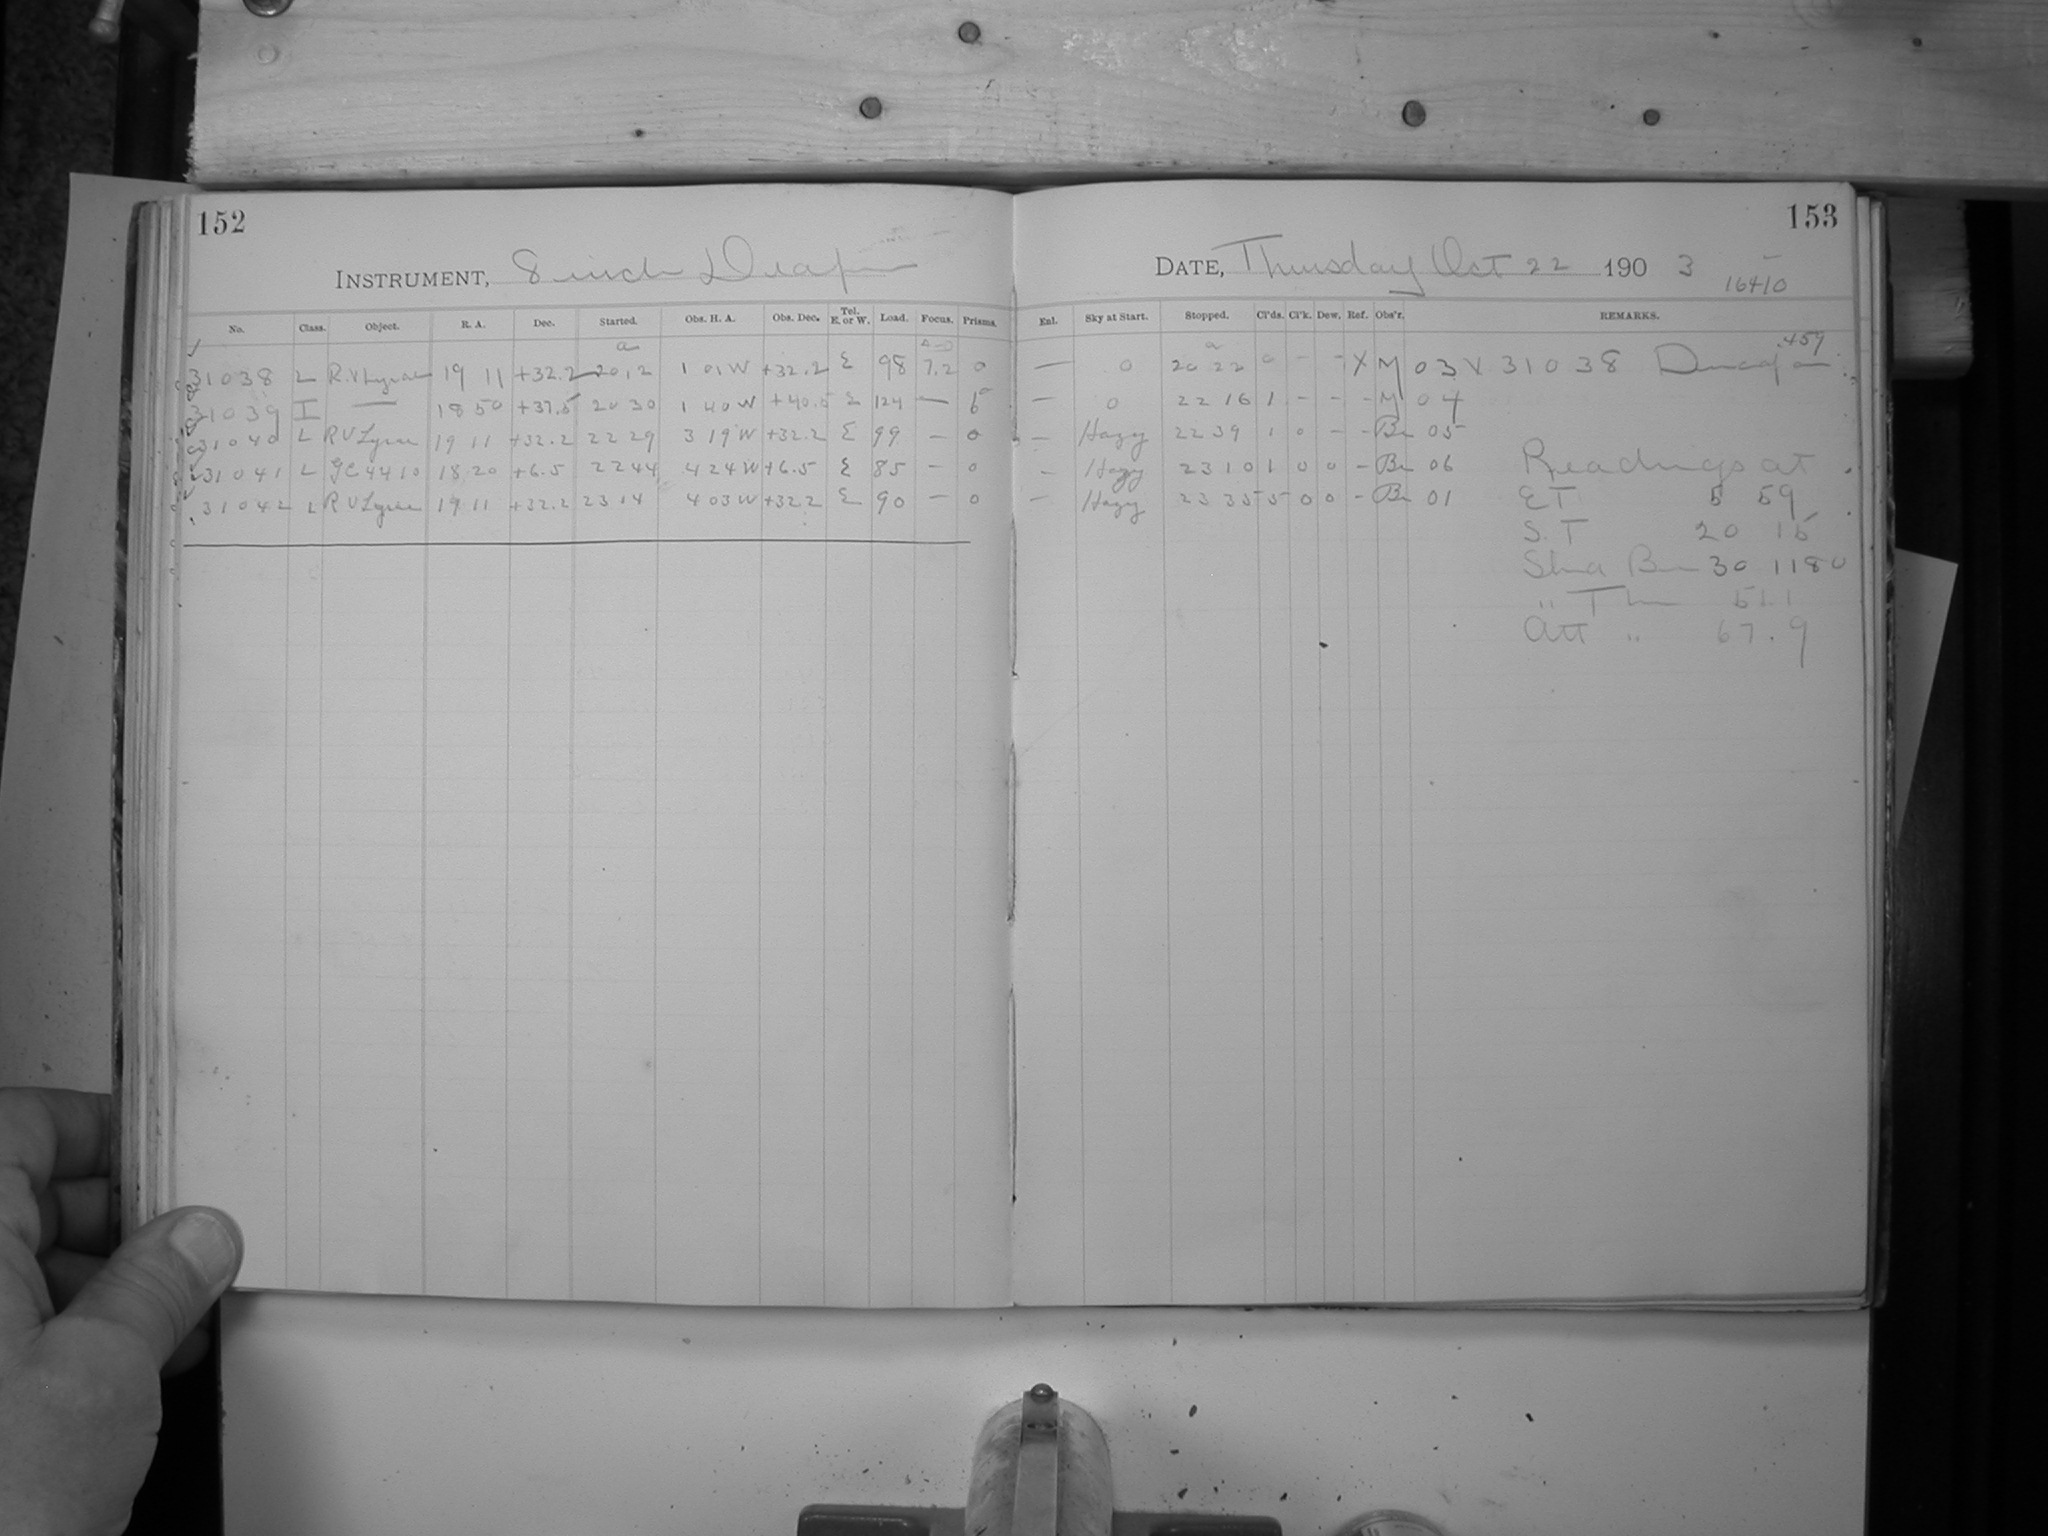 152
INSTRUMENT, 8 inch Draper
No. Class. Object. R. A. Dec. Started. Obs. H. A. Obs. Dec. Tel. E. or W. Load. Focus. Prisms.
a
31038 L R.V Lyrae 19 11 +32.2 20 12 1 01 W +32.2 E 98 7.2 0
31039 I — 18 50 +37.5 20 30 1 40 W +40.5 E 124 — 5
31040 L RV Lyrae 19 11 +32.2 22 29 3 19 W +32.2 E 99 — 0
31041 L GC 4410 18 20 +6.5 22 44 4 24 W +6.5 E 85 — 0
31042 L RV Lyrae 19 11 +32.2 23 14 4 03 W +32.2 E 90 — 0
153
DATE, Thursday Oct 22 1903
16410
Enl. Sky at Start. Stopped. Cl'ds. Cl'k. Dew. Ref. Obs'r. REMARKS.
a .459
— 0 20 22 0 - - X M 03 V 31038
— 0 22 16 1 - - - M 04
— Hazy 22 39 1 0 - - Br 05
— Hazy 23 10 1 0 0 - Br 06 Readings at
— Hazy 23 35 5 0 0 - Br 01 ET 5 59
S.T 20 15
Bar 30 1180
" Thr 51.1
Att " 67.9